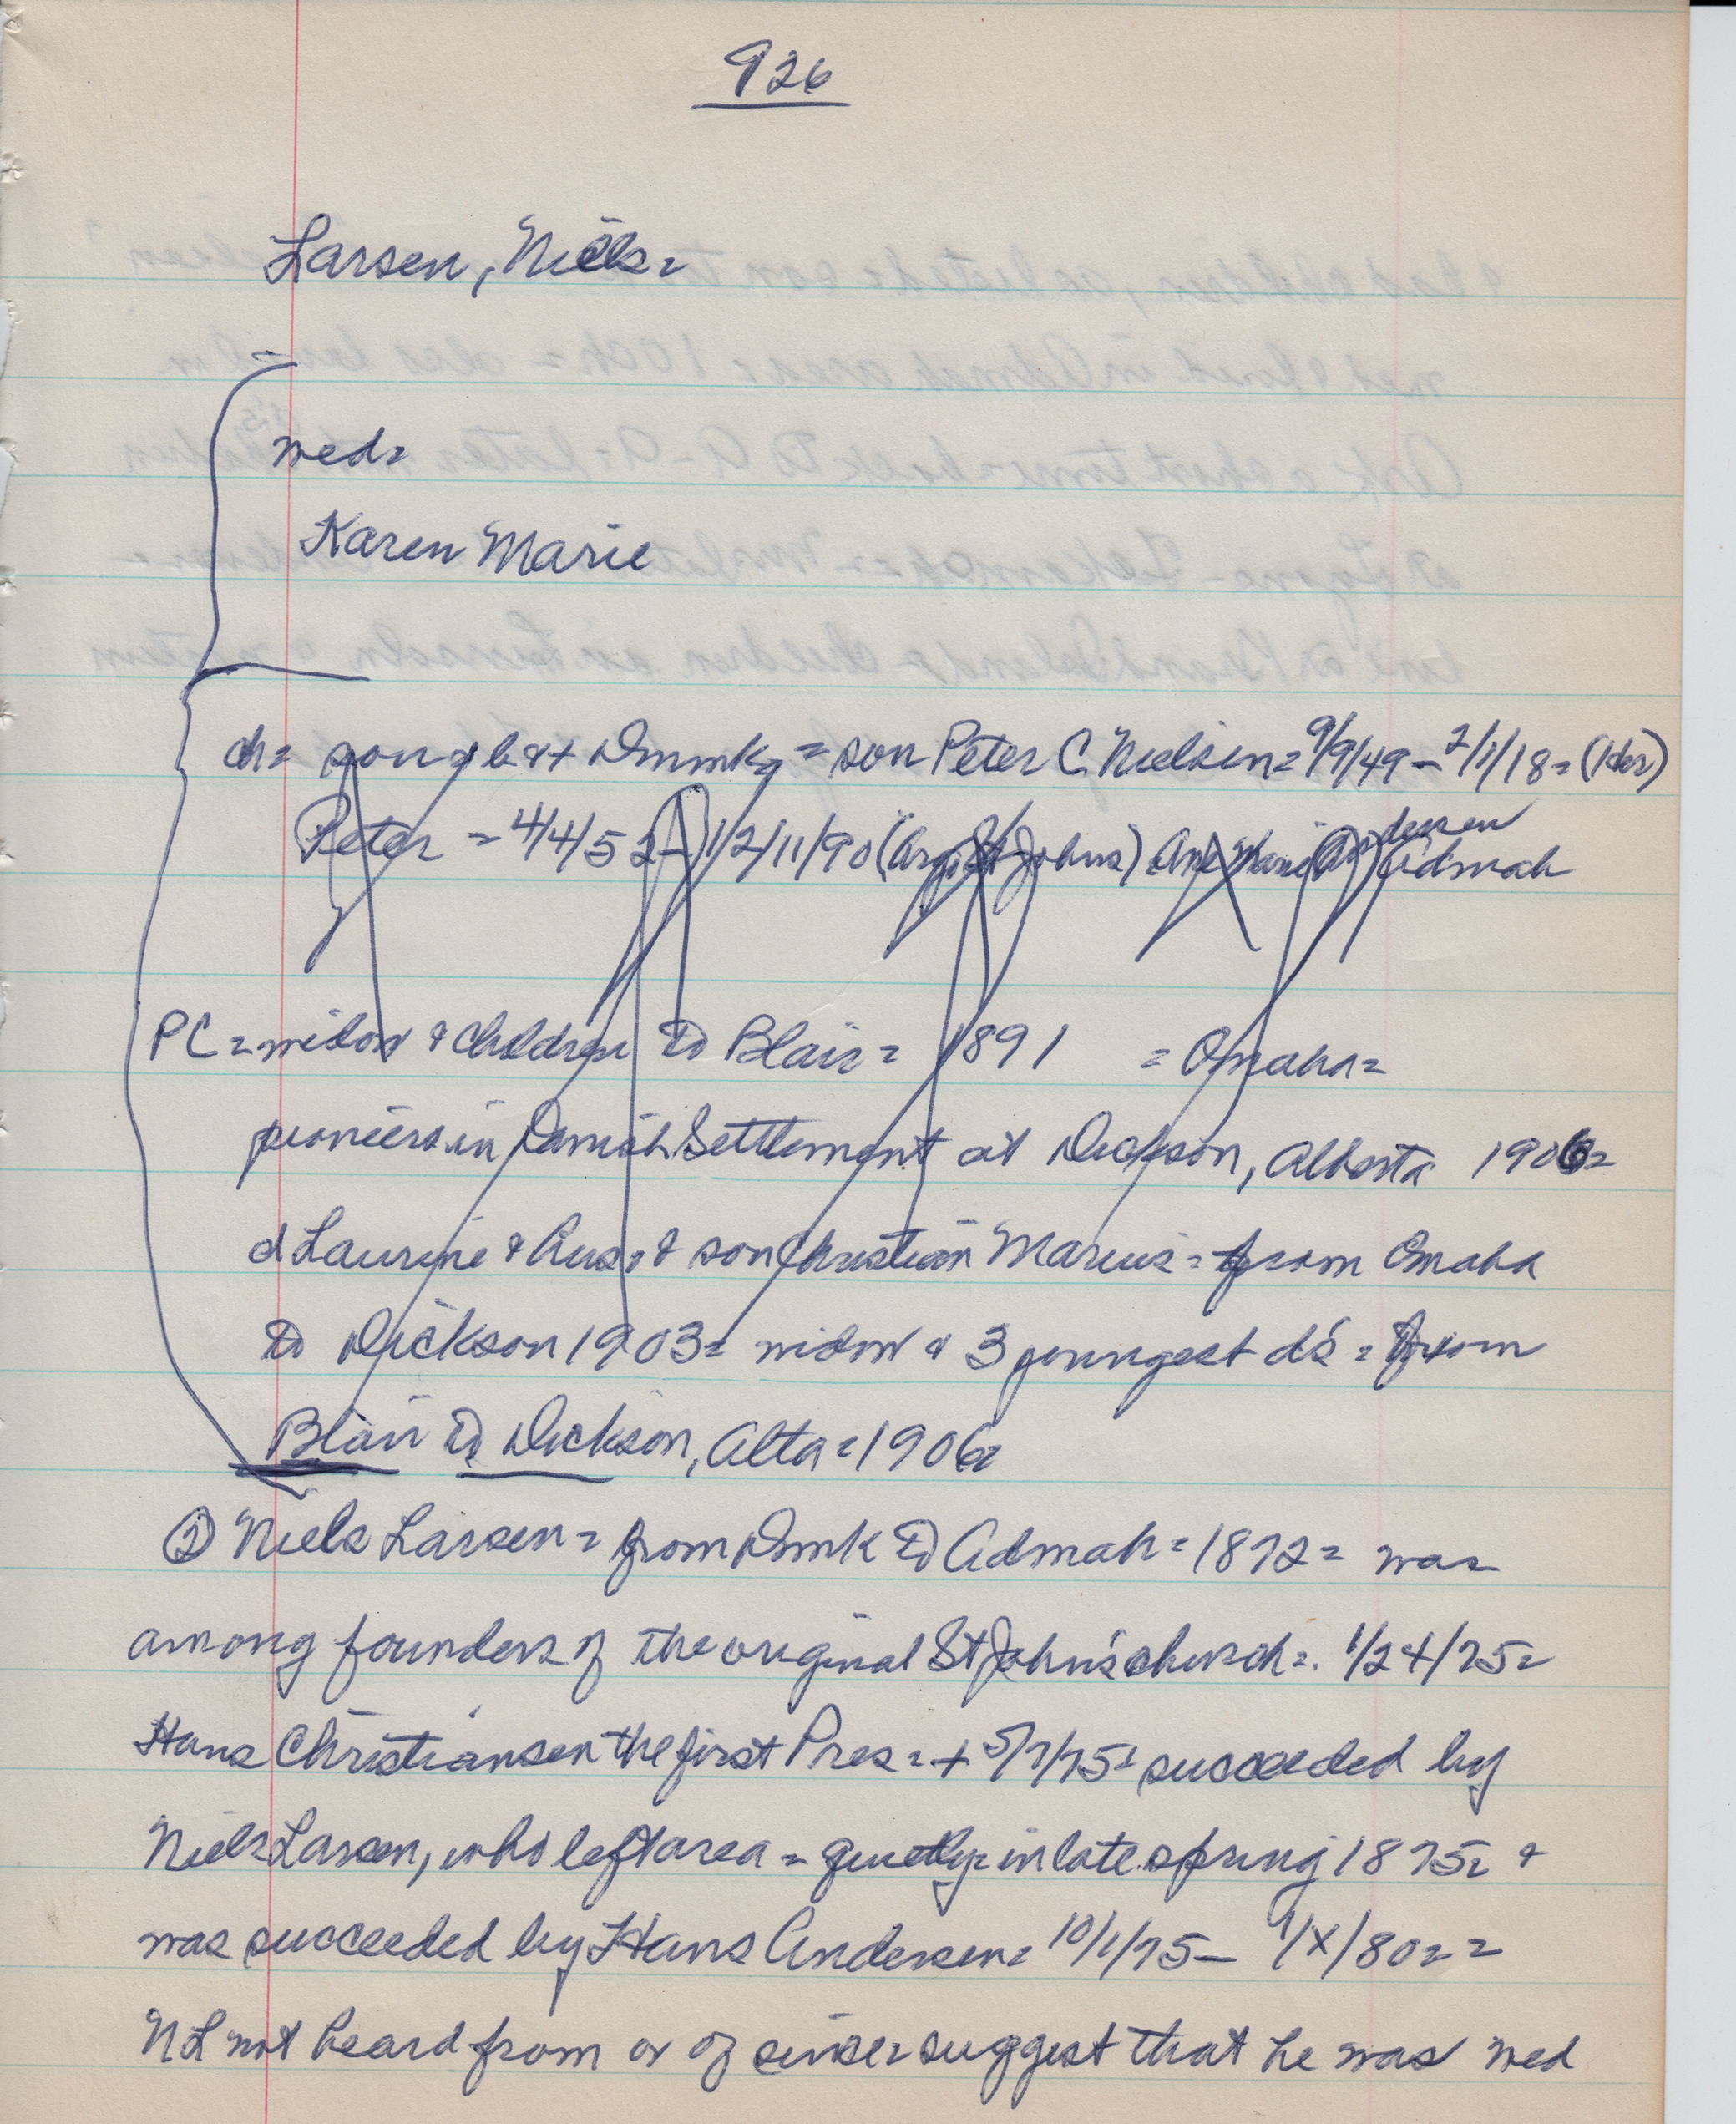 926
Larsen, Niels=
wed=
Karen Marie
ch= young b at Dnmk = son Peter C. Nielsen= 9/9/49 - 2/1/18=
Peter = 4/4/52 - 12/11/90 (Arg St Johns) Ane Marie Andersen Admah
PC = widow & children to Blair = 1891 = Omaha=
pioneers in Danish Settlement at Dickson, Alberta 1906=
d Laurine & hus = & son Christian Marius = from Omaha
to Dickson 1903= widow & 3 youngest d's = from
Blair to Dickson, Alta = 1906=
① Niels Larsen = from Dnmk to Admah = 1872 = was
among founders of the original St John's church =. 1/24/75=
Hans Christiansen the first Pres = + 5/7/75= succeeded by
Niels Larsen, who left area = quietly= in late spring 1875= &
was succeeded by Hans Andersen= 10/1/75 - 1/X/80= =
NL not heard from or of since= suggest that he was wed